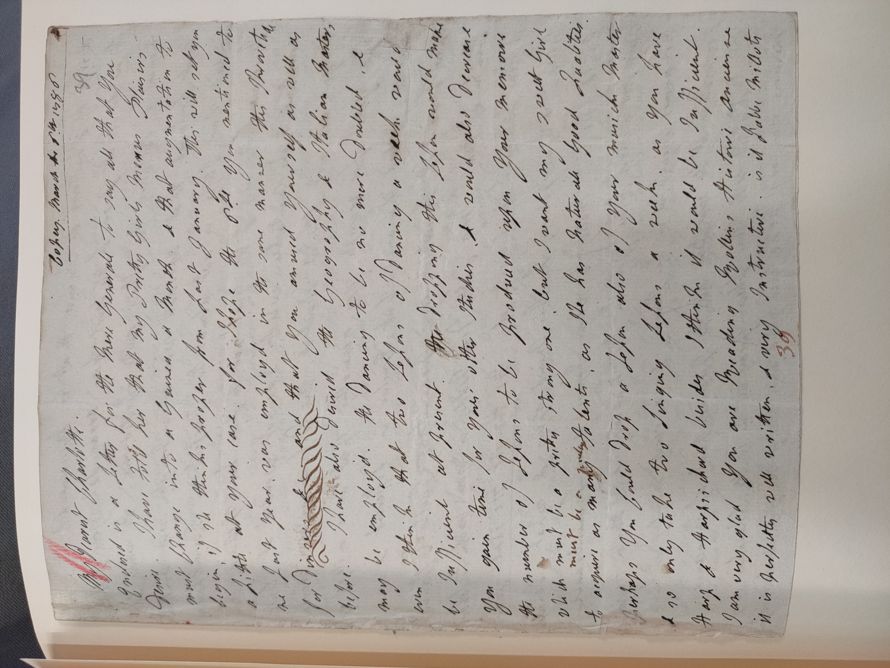 Copy March the 5th 1778
39
My Dearest Charlotte.
Enclosed is a letter for the three Generals to say all that you
desire. I have told her that my Pretty Girls Menus Plaisirs
must change into a Guinea a Month & that augmentation to
begin if she thinks proper from last January. This will set you
a little at your ease. for I hope the you mentioned to
me last year was employd in the same manner this Months
for and that you amused yourself as well as
before. I have also desired the Geography & Italian Master
may be employd. the Dancing to be no more Practiced. &
even I think that two Lessons of Dancing a week would
be sufficient at present. the dropping this Lesson would make
you gain time for your other studies. & would also decrease
the number of Lessons to be produced upon your memorie
which must be a pretty strong one. but I want my sweet Girl
must be
to acquire as many talents, as she has natural Good Qualities
perhaps you could drop a Lesson also of your musick Master
& so only take two singing Lessons a week. as you have
Harp & Harpsichord besides I think it would be sufficient.
I am very glad you are Reading Rollins Histoire ancienne
it is perfectly well written, & very Instructive. is
39